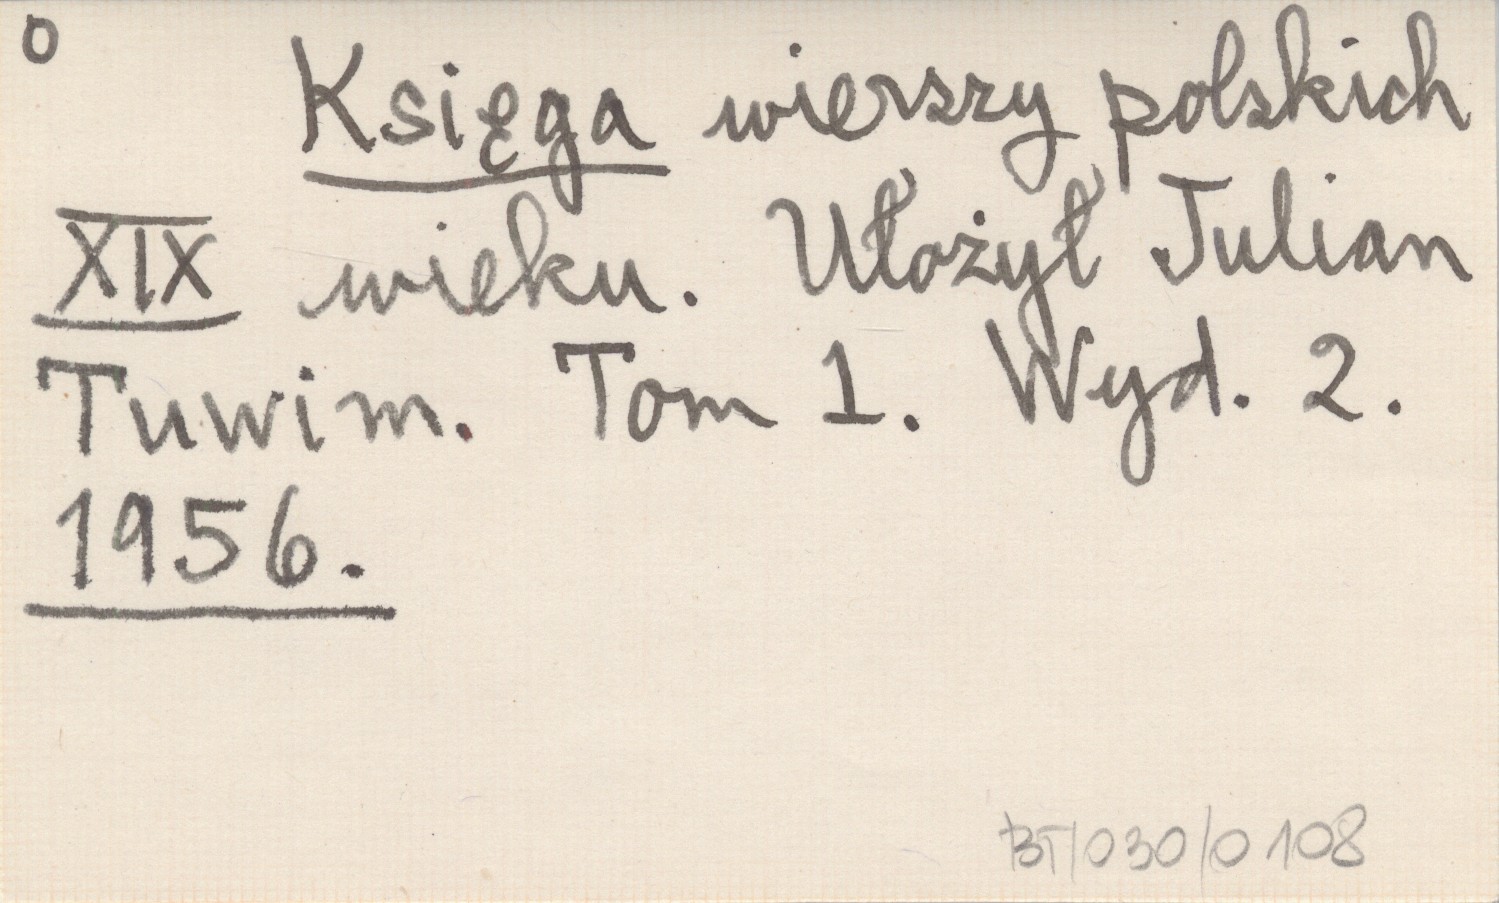 0
Księga wierszy polskich
XIX wieku. Ułożył Julian
Tuwim. Tom 1. Wyd. 2.
1956.
BT/030/0108